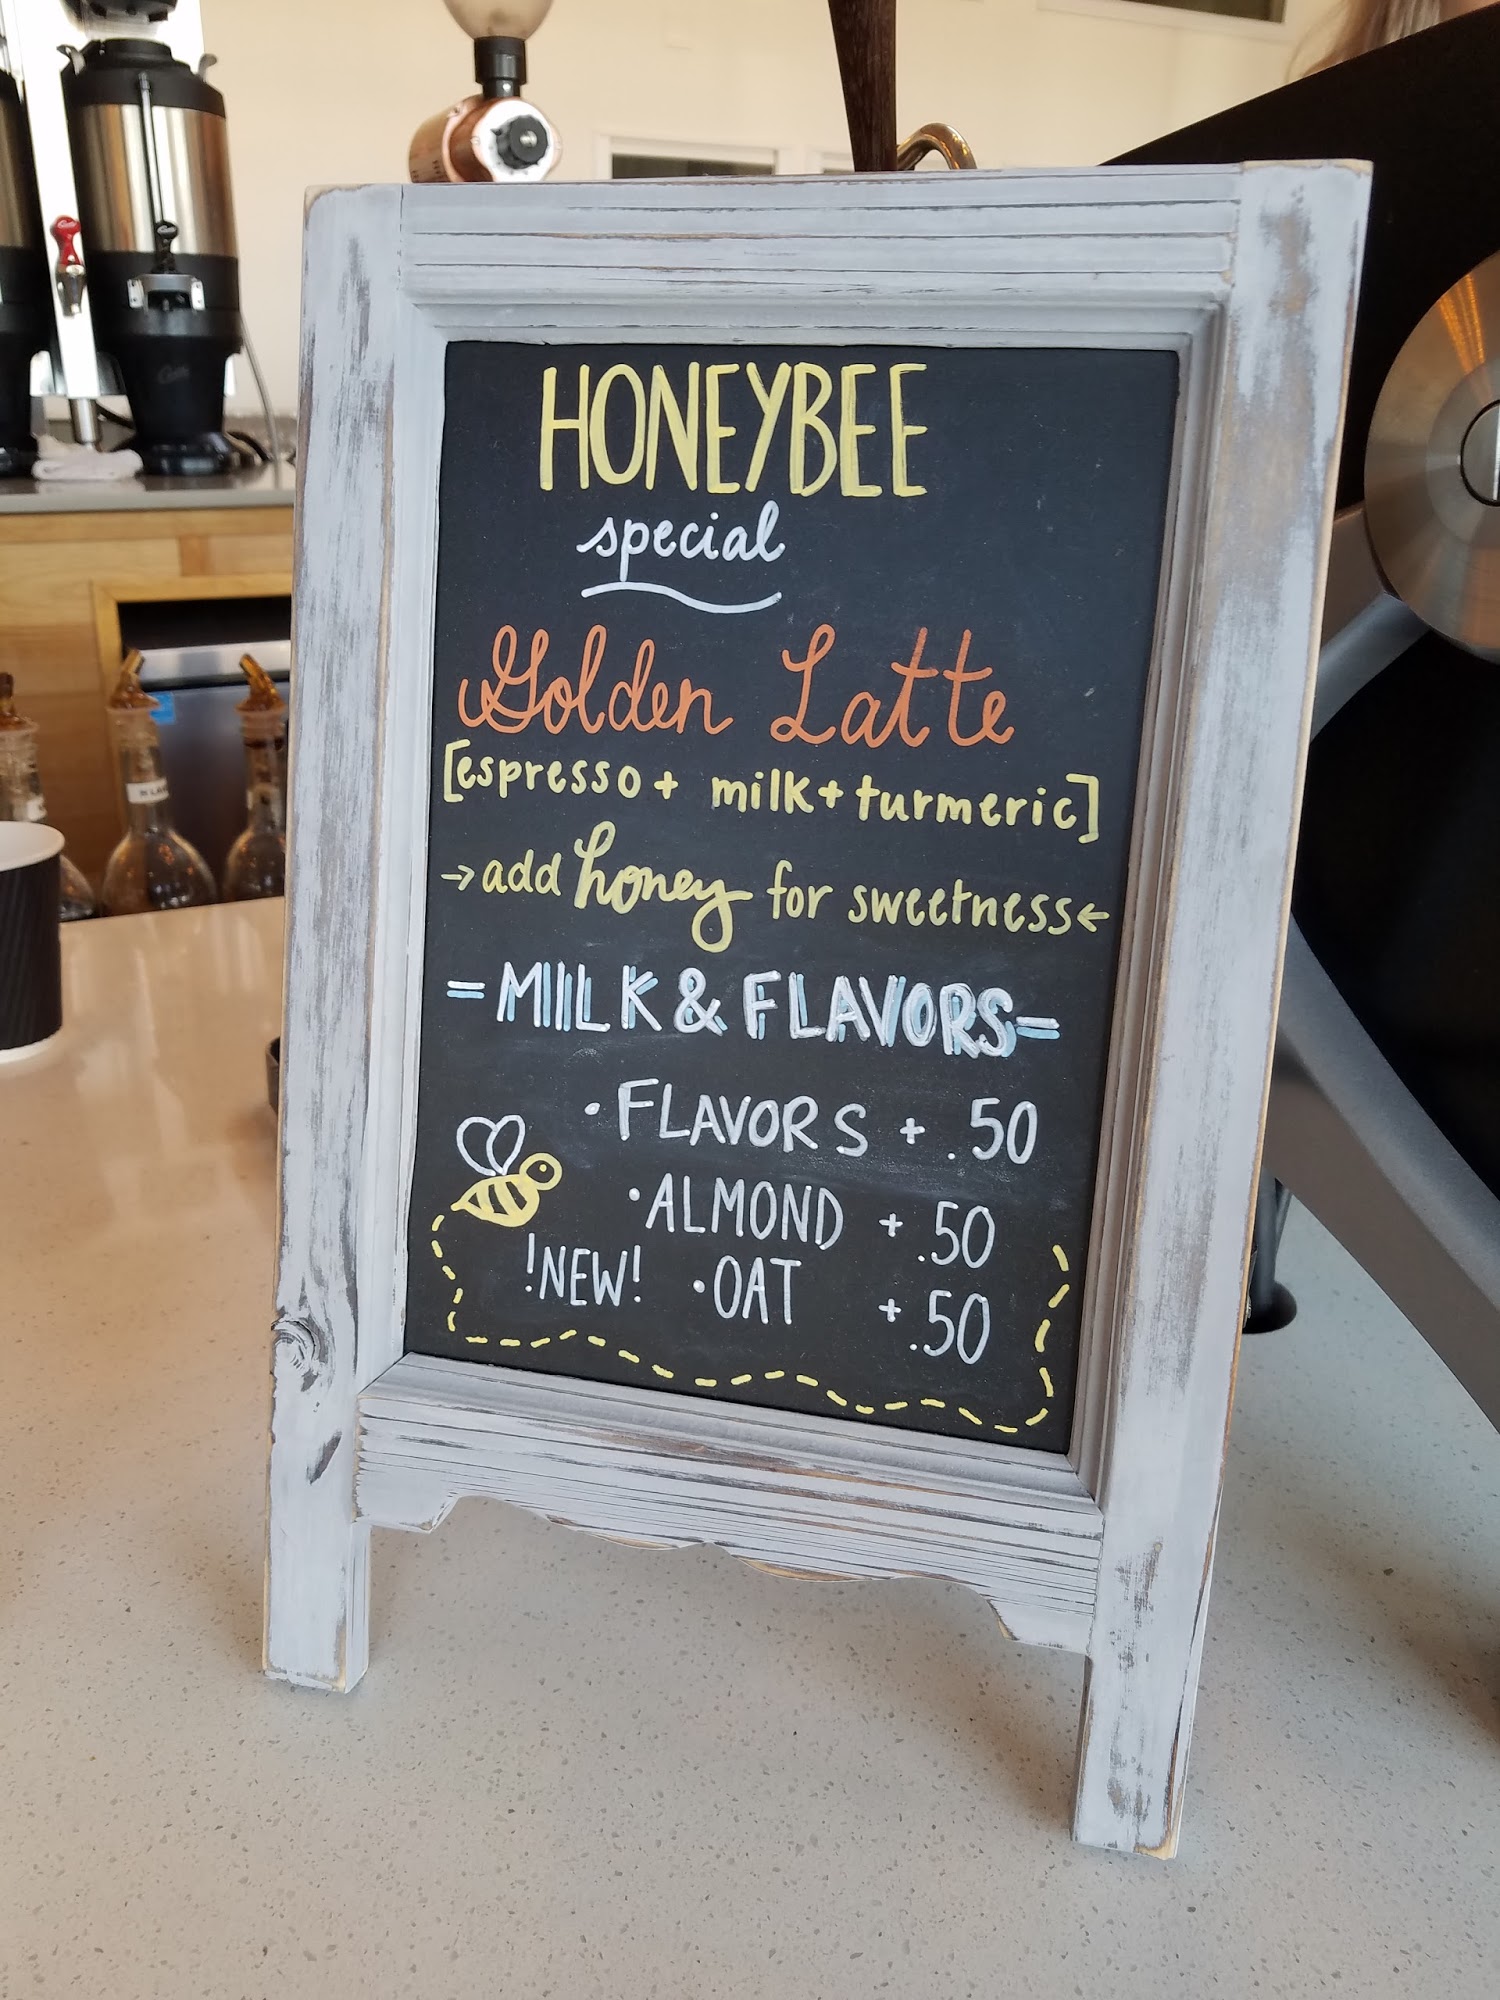 HONEYBEE
special
Golden Latte
[espresso + milk + turmeric]
→ add honey for sweetness ←
= MILK & FLAVORS =
• FLAVORS + .50
• ALMOND + .50
!NEW! • OAT + .50